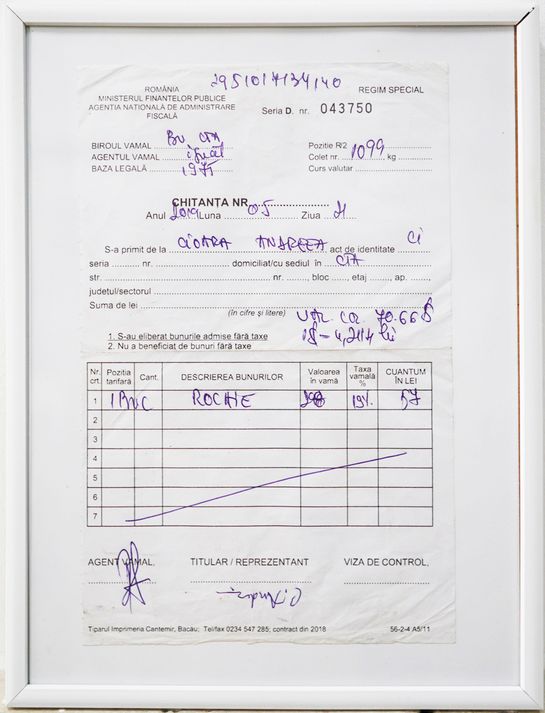 2951017134140
ROMÂNIA
MINISTERUL FINANTELOR PUBLICE
AGENTIA NATIONALĂ DE ADMINISTRARE
FISCALĂ
REGIM SPECIAL
Seria D. nr. 043750
BIROUL VAMAL ... BV CTA
AGENTUL VAMAL
BAZA LEGALĂ
Pozitie R/2 1099
Colet nr. ... kg
Curs valutar
CHITANTA NR. 05
Anul 2019 Luna Ziua 21
S-a primit de la CIOARA ANDREEA, act de identitate CI
seria ... nr. ... domiciliat/cu sediul în CTA
str. ... nr. ..., bloc ..., etaj ..., ap. ...
judetul/sectorul
Suma de lei
(în cifre și litere)
70.66 $
1. S-au eliberat bunurile admise fără taxe
2. Nu a beneficiat de bunuri fără taxe
1$ = 4,2114 lei
Nr. crt. Pozitia tarifară Cant. DESCRIEREA BUNURILOR Valoarea în vamă Taxa vamală % CUANTUM ÎN LEI
1 1 BUC ROCHIE 298 19% 57
2
3
4
5
6
7
AGENT VAMAL, TITULAR / REPREZENTANT VIZA DE CONTROL,
Tiparul Imprimeria Cantemir, Bacău; Tel/fax 0234 547 285; contract din 2018 56-2-4 A5/11